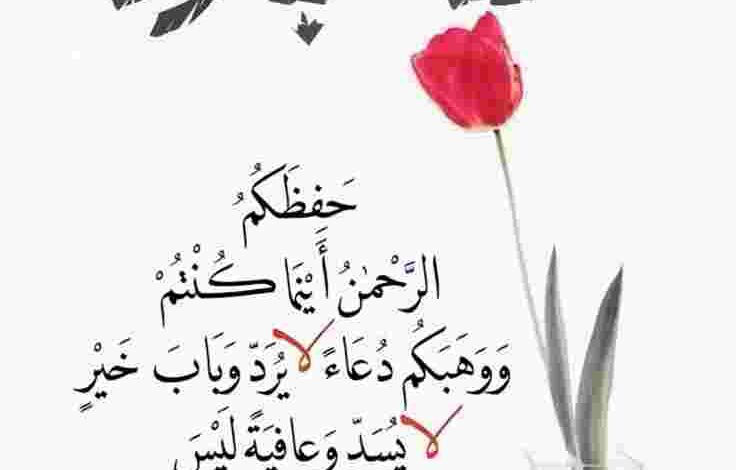 حَفِظَكُمُ
الرَّحْمٰنُ أَيْنَمَا كُنْتُمْ
وَوَهَبَكُم دُعَاءً لا يُرَدّ وَبَابَ خَيْرٍ
لا يُسَدّ وَعافِيَةً لَيْسَ